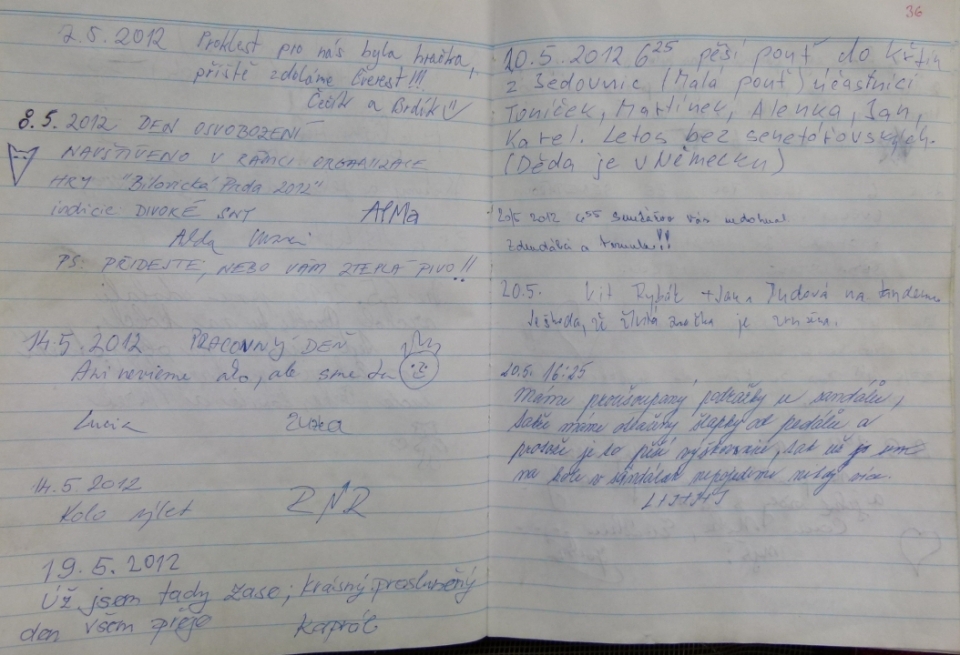 36
2.5.2012 Proklest pro nás byla hračka,
příště zdoláme Everest!!!
Čeřík a Brďák
8.5.2012 DEN OSVOBOZENÍ
NAVŠTÍVENO V RÁMCI ORGANIZACE
HRY "Bílovická Pada 2012"
indicie DIVOKÉ SNY APMa
Alda
PS: PŘIDEŠTE, NEBO VÁM ZTEPLÁ PIVO!!
14.5.2012 PRACOVNÝ DEŇ
Ani nevieme ako, ale sme tu
Lucia Zuzka
14.5.2012
Kolo výlet
19.5.2012
Už jsem tady zase; krásný prosluněný
den všem přeje Kaprál
20.5.2012 6 25 pěší pouť do Křtin
z Šedovnic (Malá pouť) účastníci
Toníček, Martínek, Alenka, Jan,
Karel. Letos bez senetářovských.
(Děda je v Německu)
20/5 2012 6 55
20.5. Vít Rybář + Jana Judová na tandemu
je škoda, že žlutá značka je zrušena.
20.5. 16:25
Máme prošoupaný podrážky u sandálů,
také máme šlapky od pedálů a
protože je to pěší, tak už
na kole v sandálech nepojedeme nikdy více.